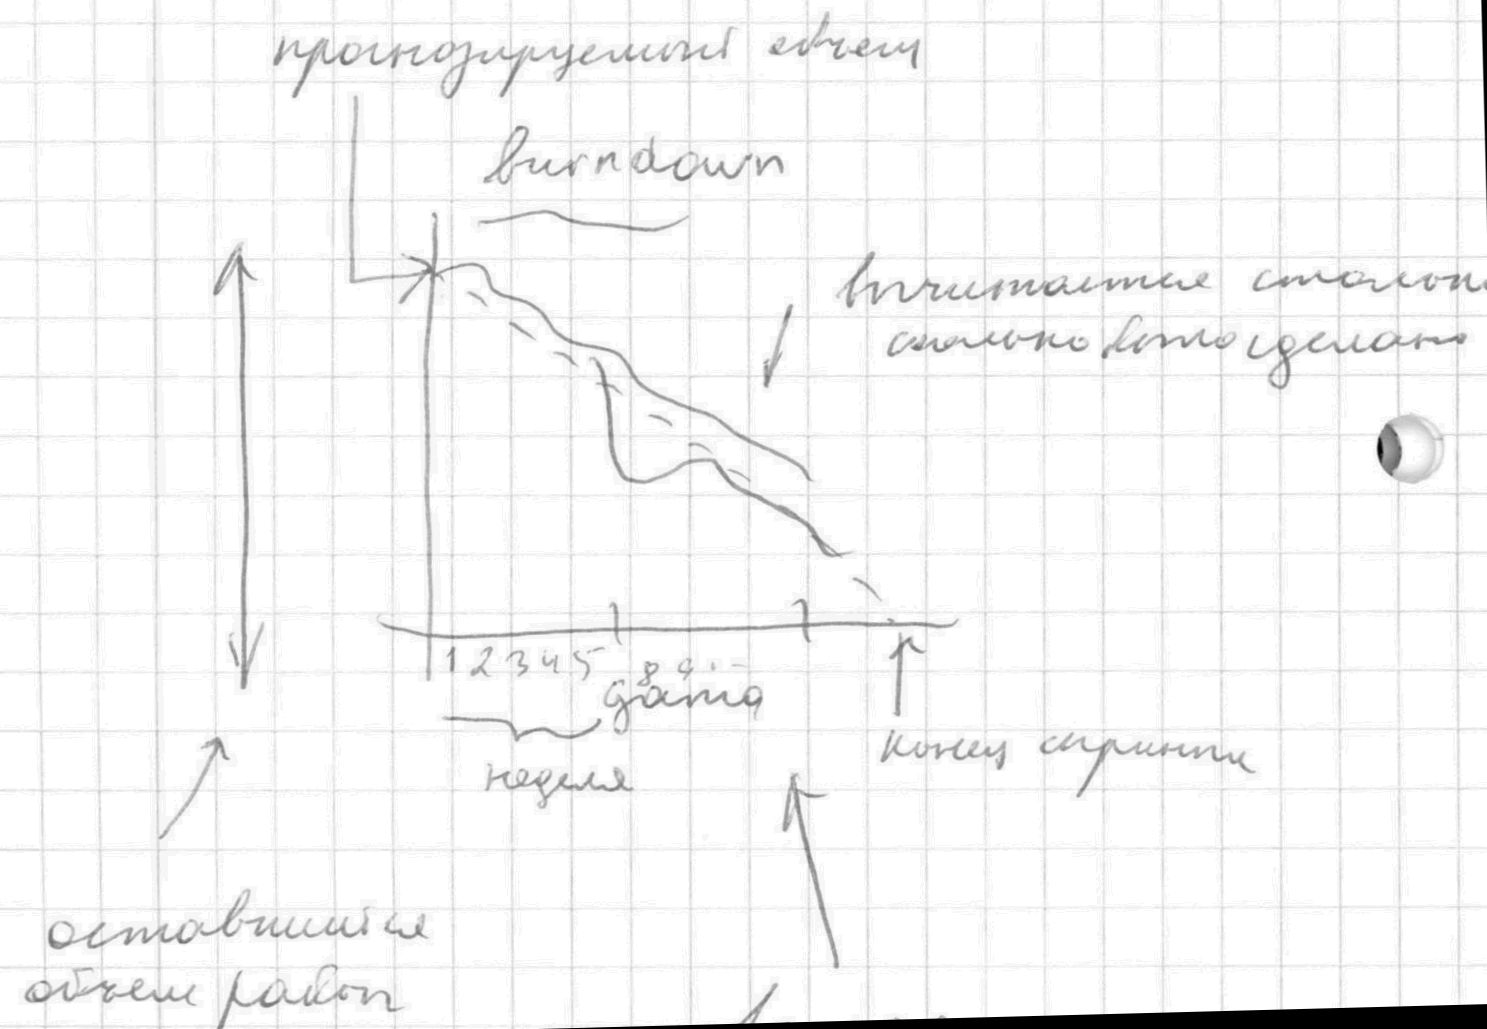 прогнозируемый объем
burndown
вычитается столь
сколько было сделано
1 2 3 4 5 8 9
дата
неделя
конец спринта
оставшийся
объем работ